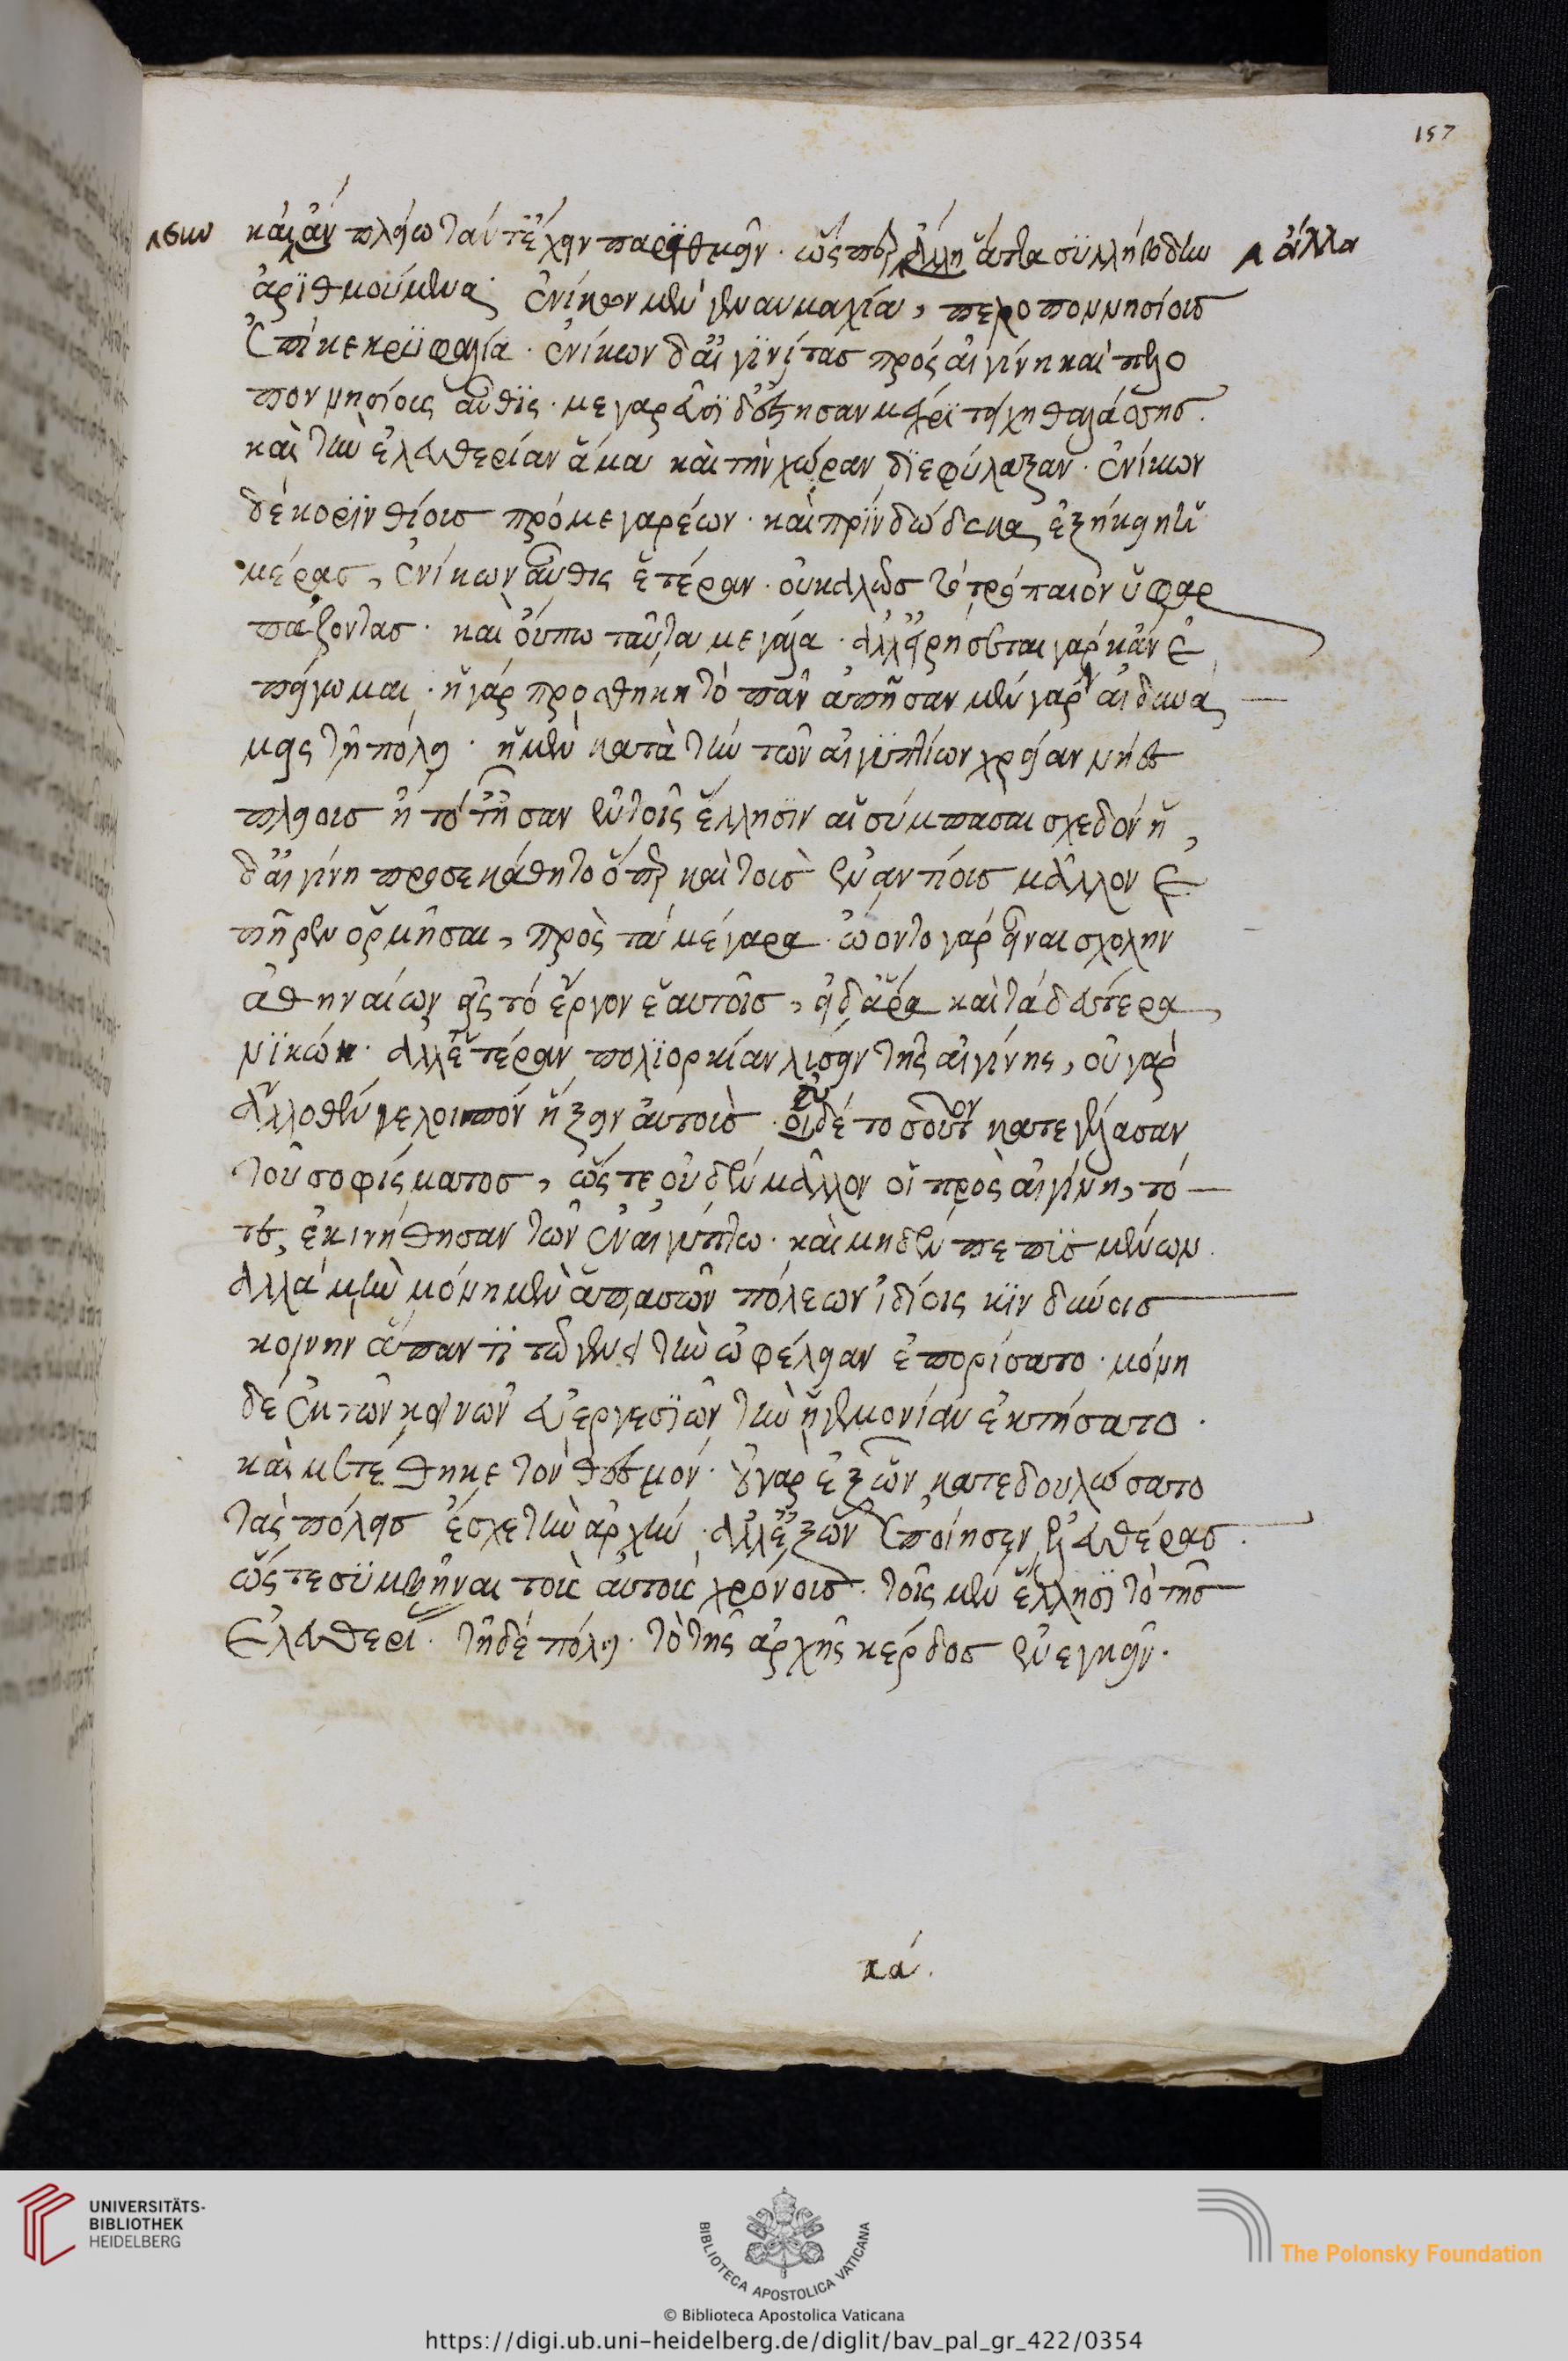 157
καὶ ἂν πλείω ταύτ' ἔχειν παριθμεῖν · ὥς περ ἄλλη ἅττα συλλήβδην ἄλλα
ἀριθμούμενα · ἐνίκων μὲν ἐν ναυμαχία, πελοποννησίους
ἐπὶ κεκρυφαλία · ἐνίκων δ' αἰγινήτας πρός αἰγίνη καὶ πελο
ποννησίοις αὖθις · μεγαρεῦσι δ' ἐξήρκησαν μέχρι τείχη θαλάσσης ·
καὶ τὴν ἐλευθερίαν ἅμα καὶ τὴν χώραν διεφύλαξαν · ἐνίκων
δὲ κορινθίους πρὸ μεγαρέων · καὶ πρὶν δώδεκα ἐξήκειν ἡ
μέρας, ἐνίκων αὖθις ἑτέραν · οὐ καλῶς τὸ τρόπαιον ὑφαρ
πάζοντας · καὶ οὔπω ταῦτα μεγάλα · ἀλλ' εἰρήσεται γὰρ κἂν ἐ
πάγωμαι · ἡ γὰρ προσθήκη τὸ πᾶν ἀπῆσαν μὲν γὰρ αἱ δυνά
μεις τῆ πόλει · ἡ μὲν κατὰ τὴν τῶν αἰγυπτίων χρείαν νήες
πλείους ἢ τότ' ἦσαν ἐν τοῖς ἕλλησιν αἱ σύμπασαι σχεδόν ἡ
δ' αἰγίνη προσεκάθητο ὅπερ καὶ τοὺς ἐναντίους μᾶλλον ἐ
πῆρεν ὁρμῆσαι, πρὸς τὰ μέγαρα · ᾤοντο γὰρ εἶναι σχολὴν
ἀθηναίων εἰς τὸ ἔργον ἑαυτοῖς, εἰ δ' ἄρα καὶ τὰ δεύτερα
νικῶν · ἀλλ' ἑτέραν πολιορκίαν λύσειν τῆς αἰγίνης, οὐ γὰρ
ἄλλοθέν γε λοιπόν ἥξειν αὐτούς · οἱ δὲ τοσοῦτον κατεγέλασαν
τοῦ σοφίσματος, ὥς τε οὐδὲν μᾶλλον οἱ πρὸς αἰγίνη, τό
τε, ἐκινήθησαν τῶν ἐν αἰγύπτω · καὶ μηδὲν πεπυσμένων ·
ἀλλὰ μὴν μόνη μὲν ἁπασῶν πόλεων ἰδίοις κινδύνοις
κοινὴν ἅπαντι τῶ γένει τὴν ὠφέλειαν ἐπορίσατο · μόνη
δὲ ἐκ τῶν κοινῶν εὐεργεσιῶν τὴν ἡγεμονίαν ἐκτήσατο ·
καὶ μετέθηκε τὸν θεσμόν · οὐ γὰρ ἐξ ὧν κατεδουλώσατο
τὰς πόλεις ἔσχε τὴν ἀρχήν · ἀλλ' ἐξ ὧν ἐποίησεν ἐλευθέρας ·
ὥς τε συμβῆναι τοῖς αὐτοῖς χρόνοις · τοῖς μὲν ἕλλησι τὸ τῆς
ἐλευθερί · τῆ δὲ πόλει · τὸ τῆς ἀρχῆς κέρδος ἐνεγκεῖν ·
κα΄.
UNIVERSITÄTS-
BIBLIOTHEK
HEIDELBERG
BIBLIOTECA APOSTOLICA VATICANA
The Polonsky Foundation
© Biblioteca Apostolica Vaticana
https://digi.ub.uni-heidelberg.de/diglit/bav_pal_gr_422/0354